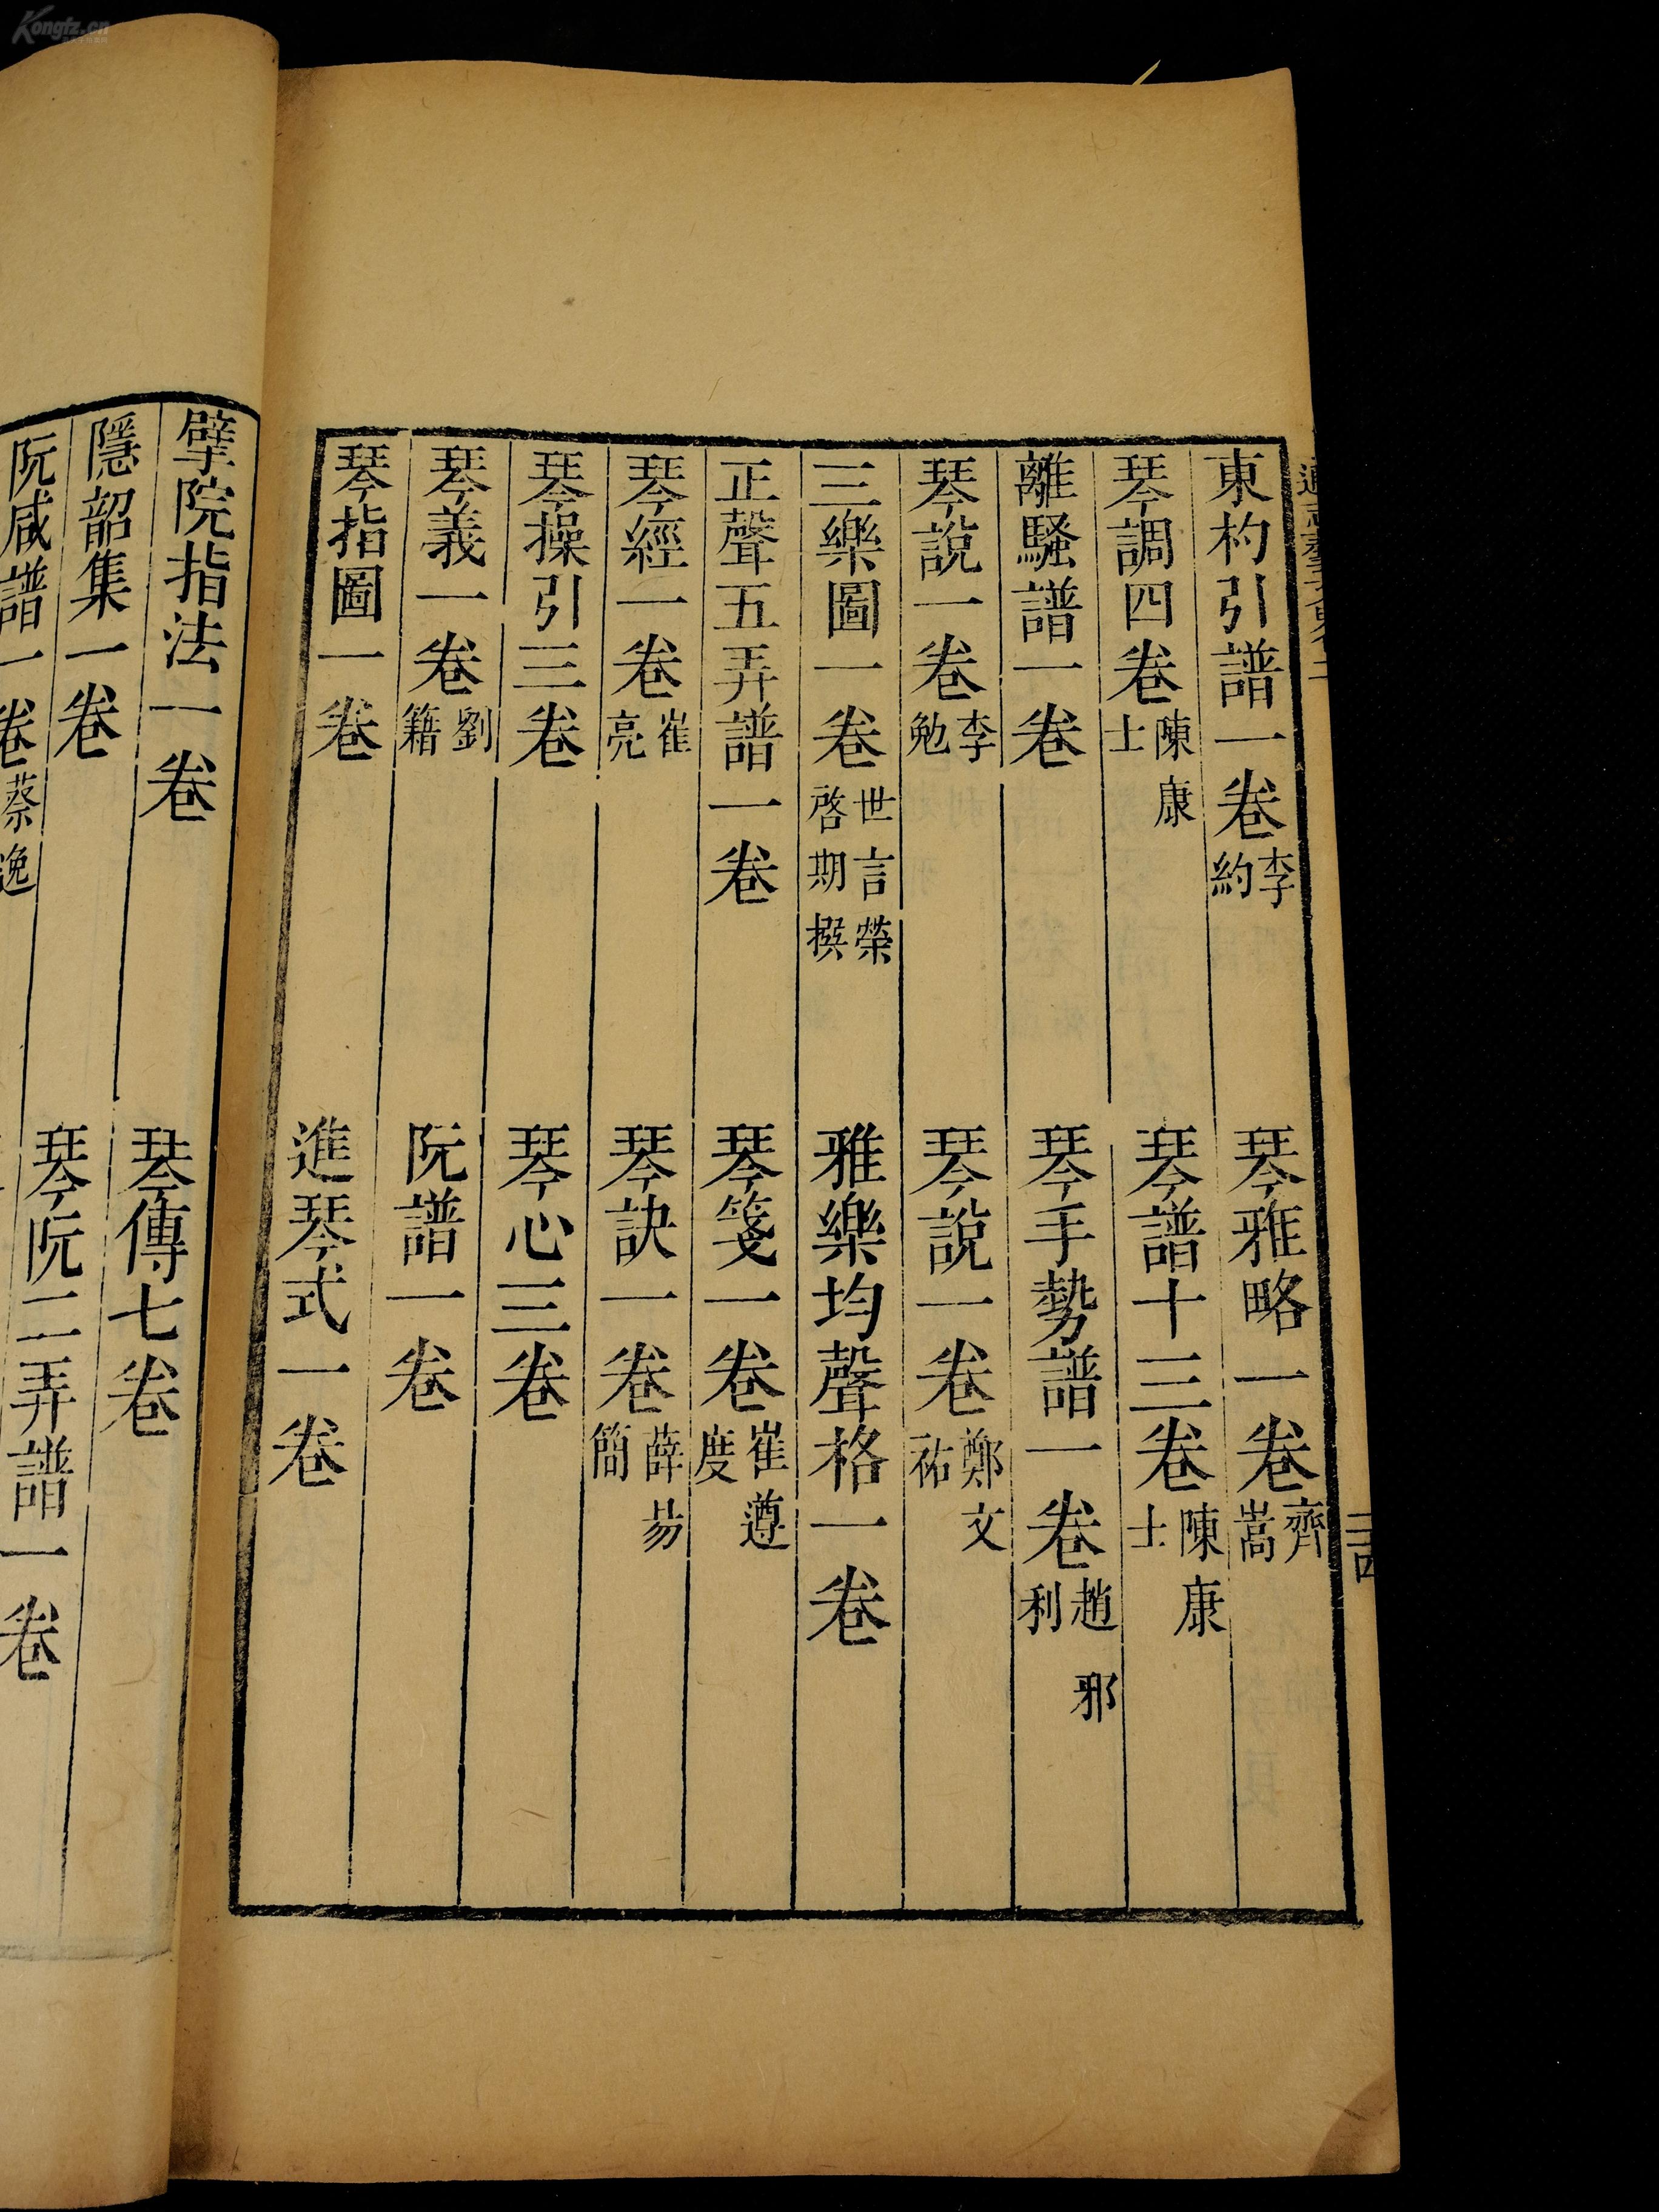 Kongfz.cn
東杓引譜一卷李約　琴雅略一卷齊嵩
琴調四卷陳康士　琴譜十三卷陳康士
離騷譜一卷　琴手勢譜一卷趙邪利
琴說一卷李勉　琴說一卷鄭文祐
三樂圖一卷世言榮啓期撰　雅樂均聲格一卷
正聲五弄譜一卷　琴箋一卷崔遵度
琴經一卷崔亮　琴訣一卷薛易簡
琴操引三卷　琴心三卷
琴義一卷劉籍　阮譜一卷
琴指圖一卷　進琴式一卷
擘阮指法一卷　琴傳七卷
隱韶集一卷　琴阮二弄譜一卷
阮咸譜一卷蔡逸